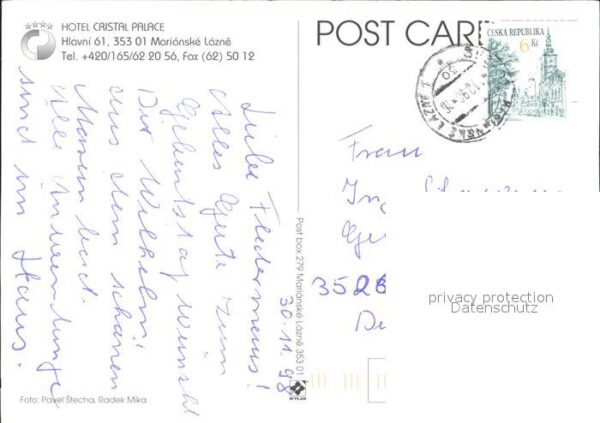 HOTEL CRISTAL PALACE
Hlavní 61, 353 01 Mariánské Lázně
Tel. +420/165/62 20 56, Fax (62) 50 12
POST CARD
ČESKÁ REPUBLIKA
6 Kč
MARIÁNSKÉ LÁZNĚ 1
30.11.98
Liebe Fledermaus!
Alles Gute zum
Geburtstag wünscht
Dir Wilhelm!
aus dem schönen
Marienbad.
Alle Anwendungen
sind im Haus.
Frau
3526
privacy protection
Datenschutz
Post box 279 Mariánské Lázně 353 01
Foto: Pavel Štecha, Radek Míka